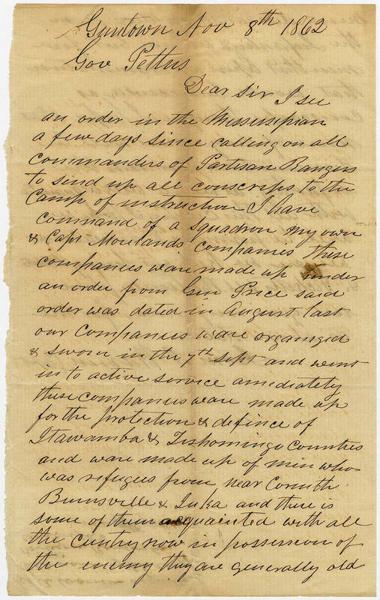 Guntown Nov 8th 1862
Gov Pettus
Dear Sir I see
an order in the Mississipian
a few days since calling on all
commanders of Partisan Rangers
to send up all conscrips to the
Camp of instruction I have
command of a Squadron my own
& Capt Morlands companies these
companies ware made up under
an order from Gen Price said
order was dated in August last
our Companies ware organized
& sworn in the 7th Sept and went
in to active service amediately
these companies ware made up
for the protection & defince of
Itawamba & Tishomingo Counties
and ware made up of men who
was refugees from near Corinth
Burnsville & Iuka and there is
some of them acquainted with all
the cuntry now in possession of
the enemy they are generally old